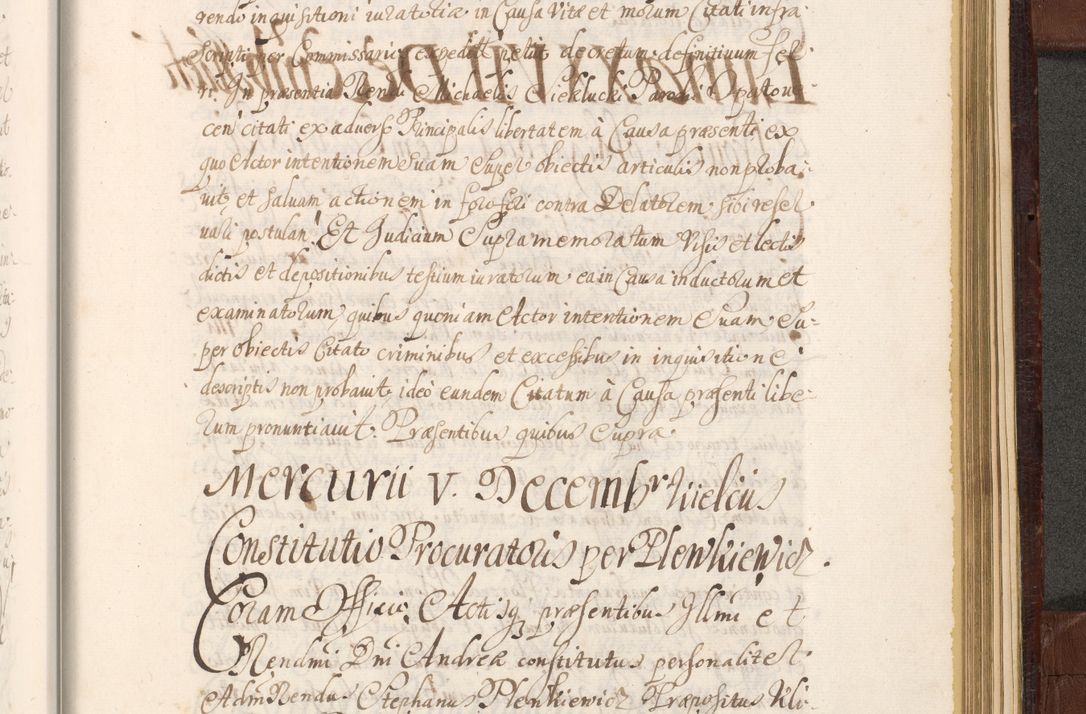 rendo inquisitioni iuratoriæ in Causa Vitæ et morum Citati infra
scripti per Commissario expedit petiit decretum definitivum fer
ri. In præsentia Rendi Michaelis
cen citati ex adverso Principalis libertatem à Causa præsenti ex
quo Actor intentionem Suam Super obiectis articulis non proba
vit et Salvam actionem in foro fori contra Delatorem sibi reser
vari postulan. Et Judicium Supramemoratum Visis et lectis
dictis et depositionibus testium iuratorum ea in Causa inductorum et
examinatorum, quibus quoniam Actor intentionem Suam Su-
per obiectis Citato criminibus et excessibus in inquisitione
descriptis non probavit ideò eundem Citatum à Causa præsenti libe-
rum pronuntiavit. Præsentibus quibus Supra
Mercurii V. Decembr Kielcis
Constitutio Procuratoris per Plenkiewicz.
Coram Officio, Actisq præsentibus Illmi et
Rendmi Dni Andreæ constitutus personaliter
Adm Rendus Stephanus Plenkiewicz Præpositus Kli-